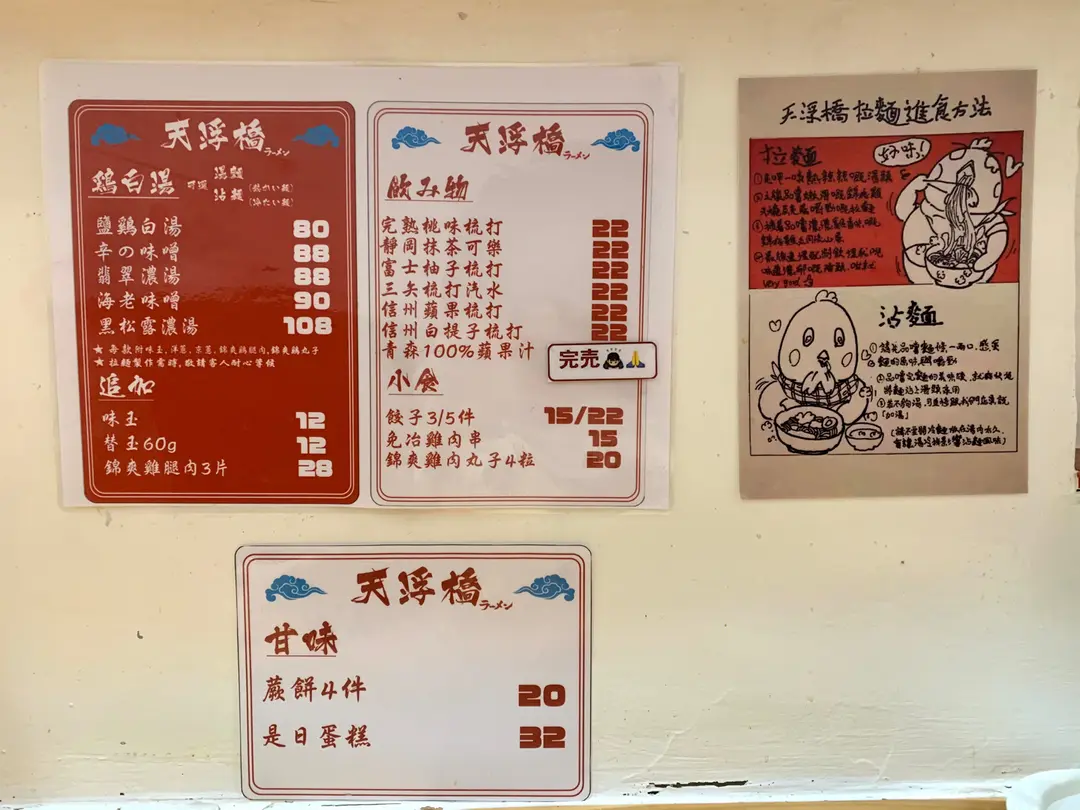 天浮橋
ラーメン
鶏白湯
可選
湯麵 (熱かい麵)
沾麵 (冷たい麵)
鹽鶏白湯 80
辛の味噌 88
翡翠濃湯 88
海老味噌 90
黑松露濃湯 108
★ 每款附味玉, 洋蔥, 京蔥, 錦爽鶏腿肉, 錦爽鶏丸子
★ 拉麵製作需時, 敬請客人耐心等候
追加
味玉 12
替玉60g 12
錦爽雞腿肉3片 28
天浮橋
ラーメン
飲み物
完熟桃味梳打 22
靜岡抹茶可樂 22
富士柚子梳打 22
三矢梳打汽水 22
信州蘋果梳打 22
信州白提子梳打 22
青森100%蘋果汁
完売
小食
餃子3/5件 15/22
免治雞肉串 15
錦爽雞肉丸子4粒 20
天浮橋
ラーメン
甘味
蕨餅4件 20
是日蛋糕 32
天浮橋拉麵進食方法
拉麵
好味!
very good
沾麵
①請先品嚐麵條一兩口, 感受
麵的原味與嚼勁
「加湯」